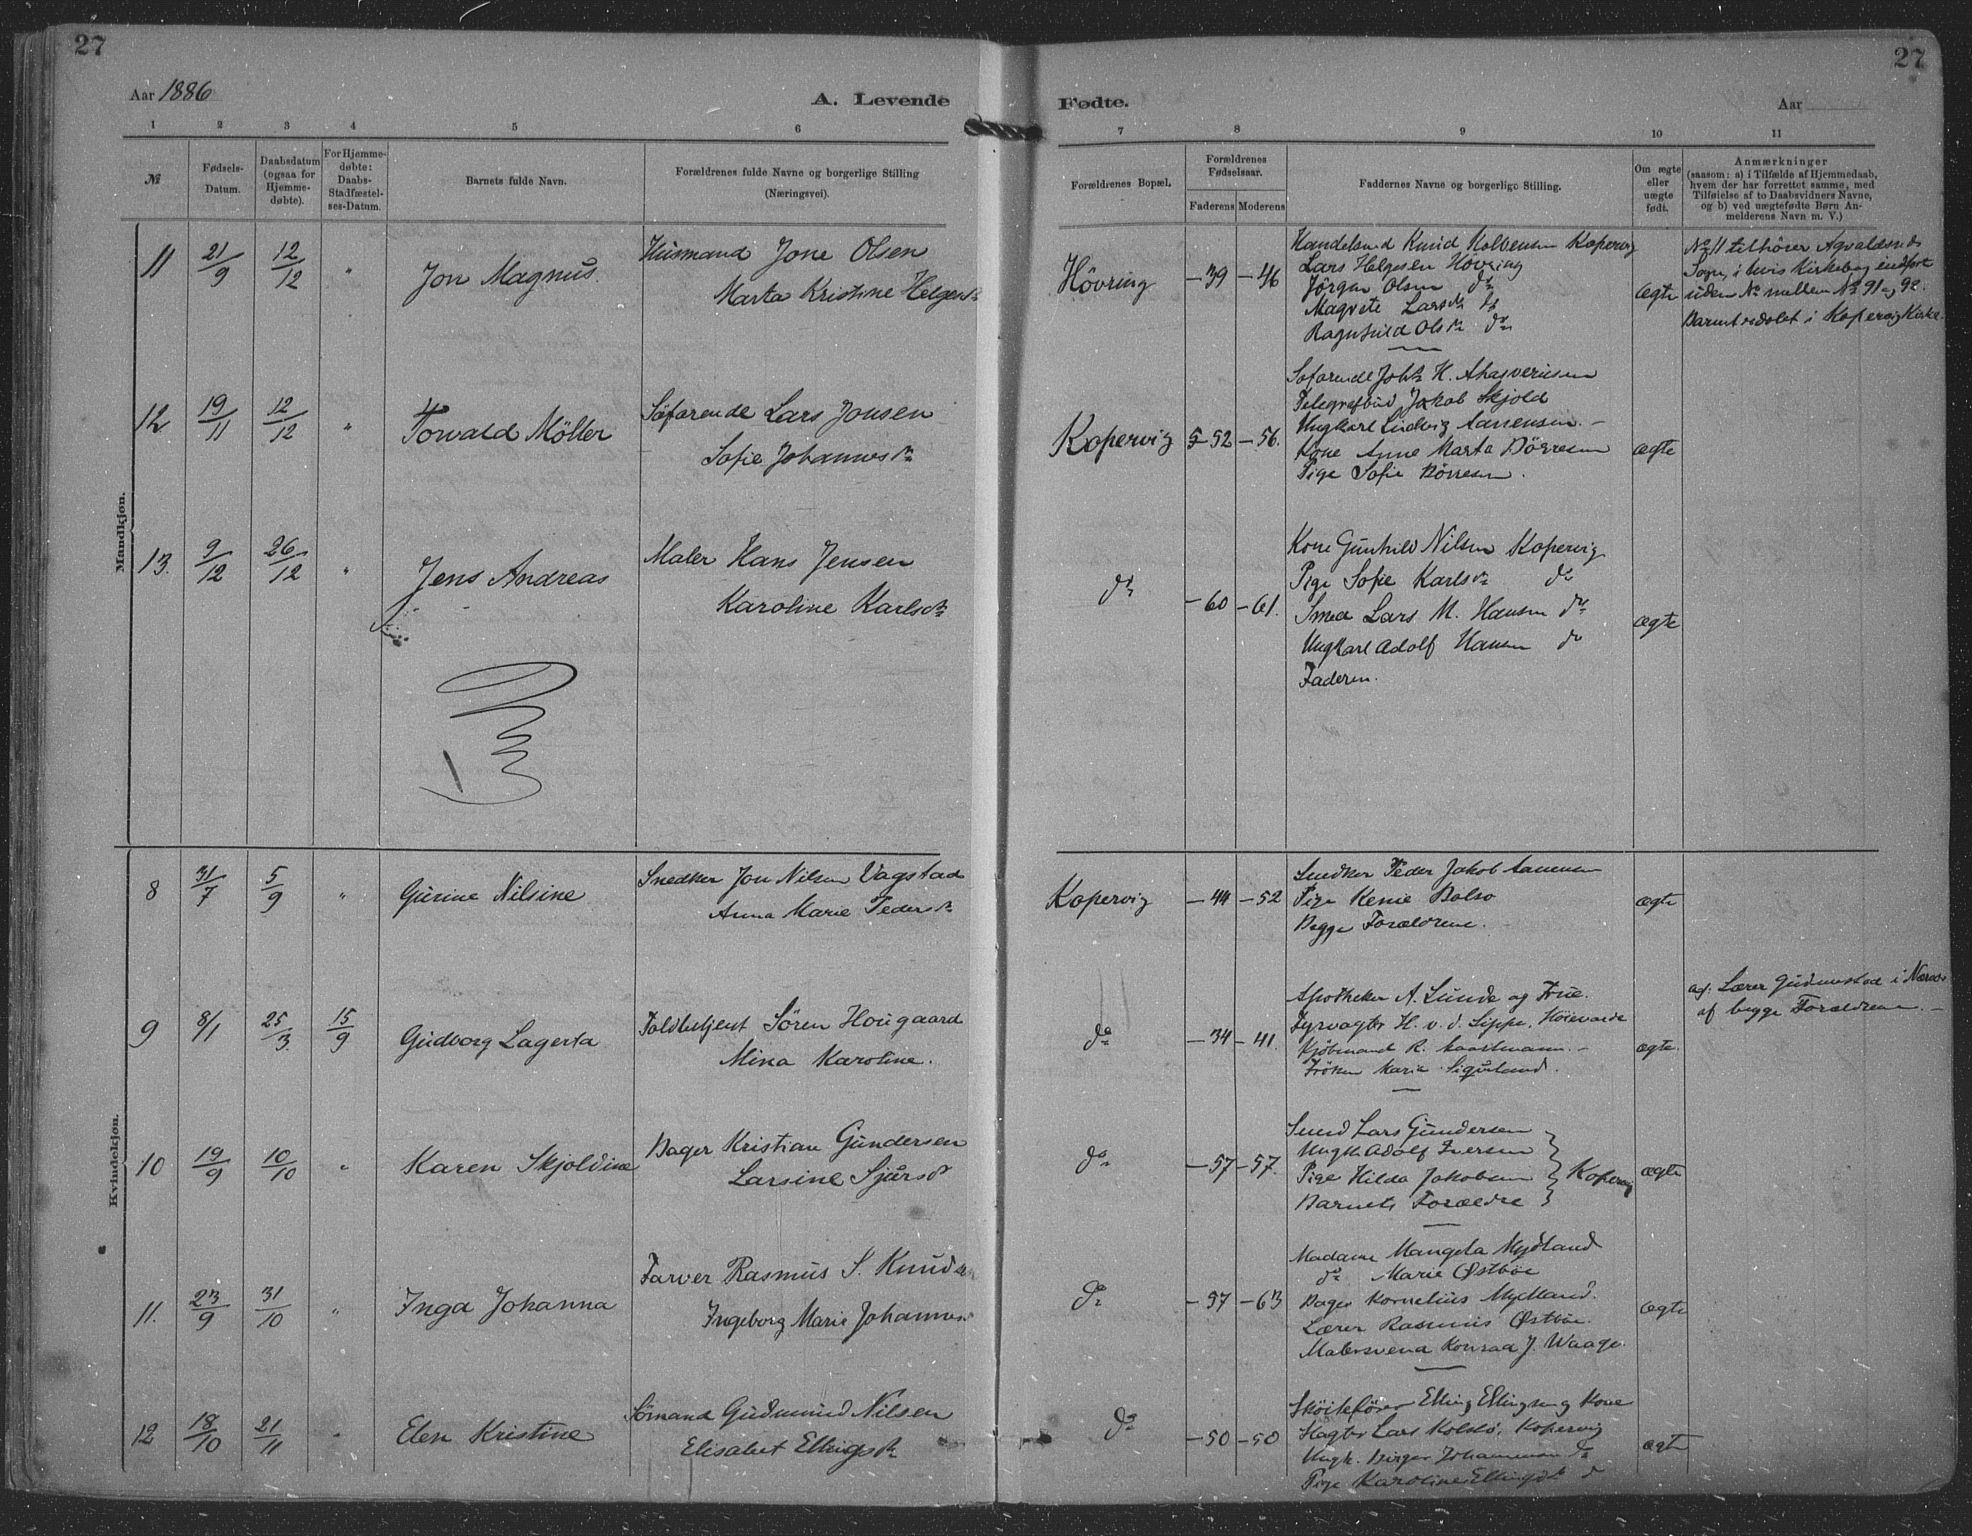 27
27
Aar 1886
A. Levende
Fødte.
Aar
1 2 3 4 5 6 7 8 9 10 11
№
Fødsels-
Datum.
Daabsdatum
(ogsaa for
Hjemme-
døbte).
For Hjemme-
døbte:
Daabs-
Stadfæstel-
ses-Datum.
Barnets fulde Navn.
Forældrenes fulde Navne og borgerlige Stilling
(Næringsvei).
Forældrenes Bopæl.
Forældrenes
Fødselsaar.
Faderens Moderens
Faddernes Navne og borgerlige Stilling.
Om ægte
eller
uægte
født.
Anmærkninger
(saasom: a) i Tilfælde af Hjemmedaab,
hvem der har forrettet samme, med
Tilføielse af to Daabsvidners Navne,
og b) ved uægtefødte Børn An-
melderens Navn m. V.)
Mandkjøn.
11 21/9 12/12 " Jon Magnus.
Husmand Jone Olsen
Marta Kristine Helgesdr
Hövring -39 -46
Handelsmd Knud Kolbensen Kopervig
Lars Helgesen Hövring
Jörgen Olsen do
Magrete Larsdr do
Ragnhild Olsdr do
ægte
No 11 tilhörer Agvaldsnes
Sogn, i hvis Kirkebog indfört
uden No mellem No 91 og 92.
Barnet er döbt i Kopervig Kirke.
12 19/11 12/12 " Torvald Möller
Söfarende Lars Jonsen
Sofie Johannesdr
Kopervig 52 -56.
Söfarende Johs H. Ahasverusen
Telegrafbud Jakob Skjold
Ungkarl Ludvig Aanensen
Kone Anne Marta Börresen
Pige Sofie Börresen.
ægte
13. 9/12 26/12 " Jens Andreas
Maler Hans Jensen
Karoline Karlsdr
do -60 -61.
Kone Gunhild Nilsen Kopervig
Pige Sofie Karlsdr do
Smed Lars M. Hansen do
Ungkarl Adolf Hansen do
Faderen.
ægte
Kvindekjøn.
8 31/7 5/9 " Gurine Nilsine
Snedker Jon Nilsen Vagstad
Anna Marie Pedersdr
Kopervig -44 -52
Snedker Peder Jakob Aanensen
Pige Kenie Bolsø
Begge Forældrene.
ægte
9 8/1 25/3. 15/9 Gudborg Lagerta
Toldbetjent Sören Hougaard
Mina Karoline.
do -34 -41.
Apotheker A. Lunde og Frue.
Fyrvogter H. v. d. Lippe, Höievarde
Kjöbmand R.
Fröken Marie Sigueland.
ægte.
af Lærer Gudmestad i
af begge Forældrene.
10 19/9 10/10 " Karen Skjoldine
Bager Kristian Gundersen
Larsine Sjursdr
do -57 -57.
Smed Lars Gundersen
Ungk. Adolf Iversen
Pige Hilda Jakobsen
Barnets Forældre
Kopervig
ægte
11. 23/9 31/10 " Inga Johanna
Farver Rasmus S. Knudsen
Ingeborg Marie Johannes
do -57 -63
Madame Mangela Mydland
do Marie Østböe
Bager Kornelius Mydland.
Lærer Rasmus Østböe.
Malersvend Konrad J. Waage.
ægte
12 18/10 21/11 " Elen Kristine
Sömand Gudmund Nilsen
Elisabet Ellingsdr
do -50 -50
Sköiteförer Elling Ellingsen og Kone
Lars Kolstö, Kopervig
Ungk. Birger Johannesen do
Pige Karoline Ellingsdr do
ægte